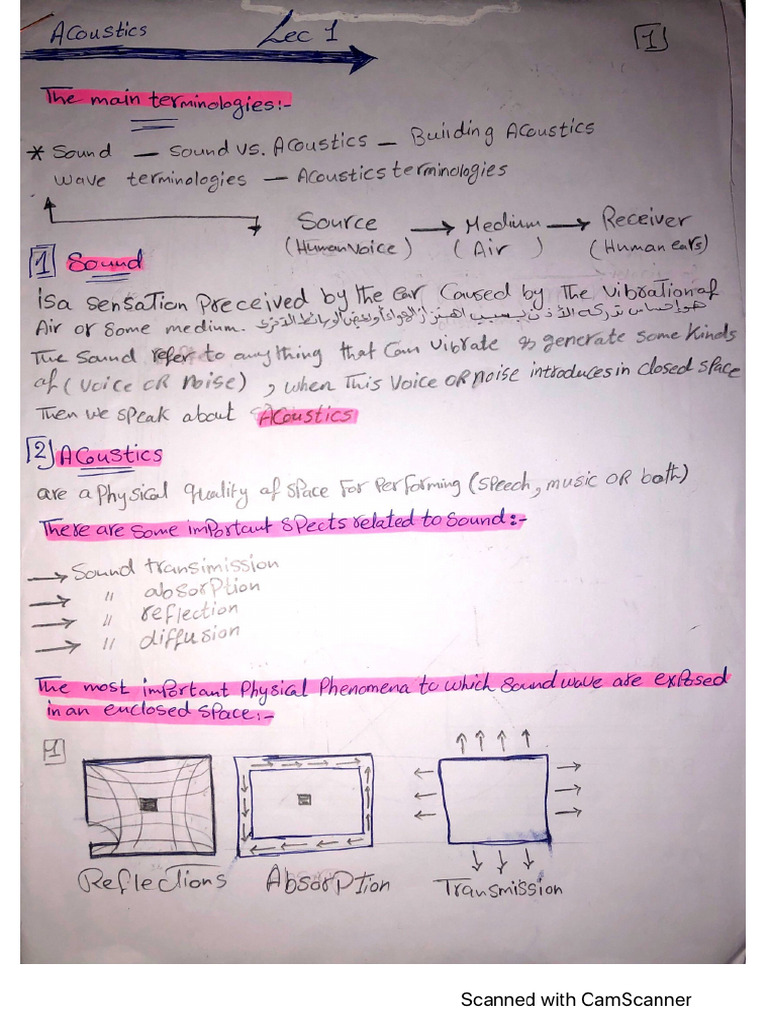 Acoustics Lec 1 [1]
The main terminologies:-
* Sound — Sound vs. Acoustics — Building Acoustics
wave terminologies — Acoustics terminologies
Source → Medium → Receiver
(Human Voice) (Air) (Human ears)
1 Sound
is a sensation preceived by the ear caused by the vibration of
Air or some medium. هو احساس تدركه الأذن بسبب اهتزاز الهواء أو بعض الوسائط الأخرى
The sound refer to anything that can vibrate & generate some kinds
of (voice OR noise), when this voice OR noise introduces in closed space
Then we speak about Acoustics
2 Acoustics
are a physical quality of space for performing (speech, music OR both)
There are some important spects related to sound:-
→ Sound transimission
→ " absorption
→ " reflection
→ " diffusion
The most important physical phenomena to which sound wave are exposed
in an enclosed space:-
1
Reflections Absorption Transmission
Scanned with CamScanner